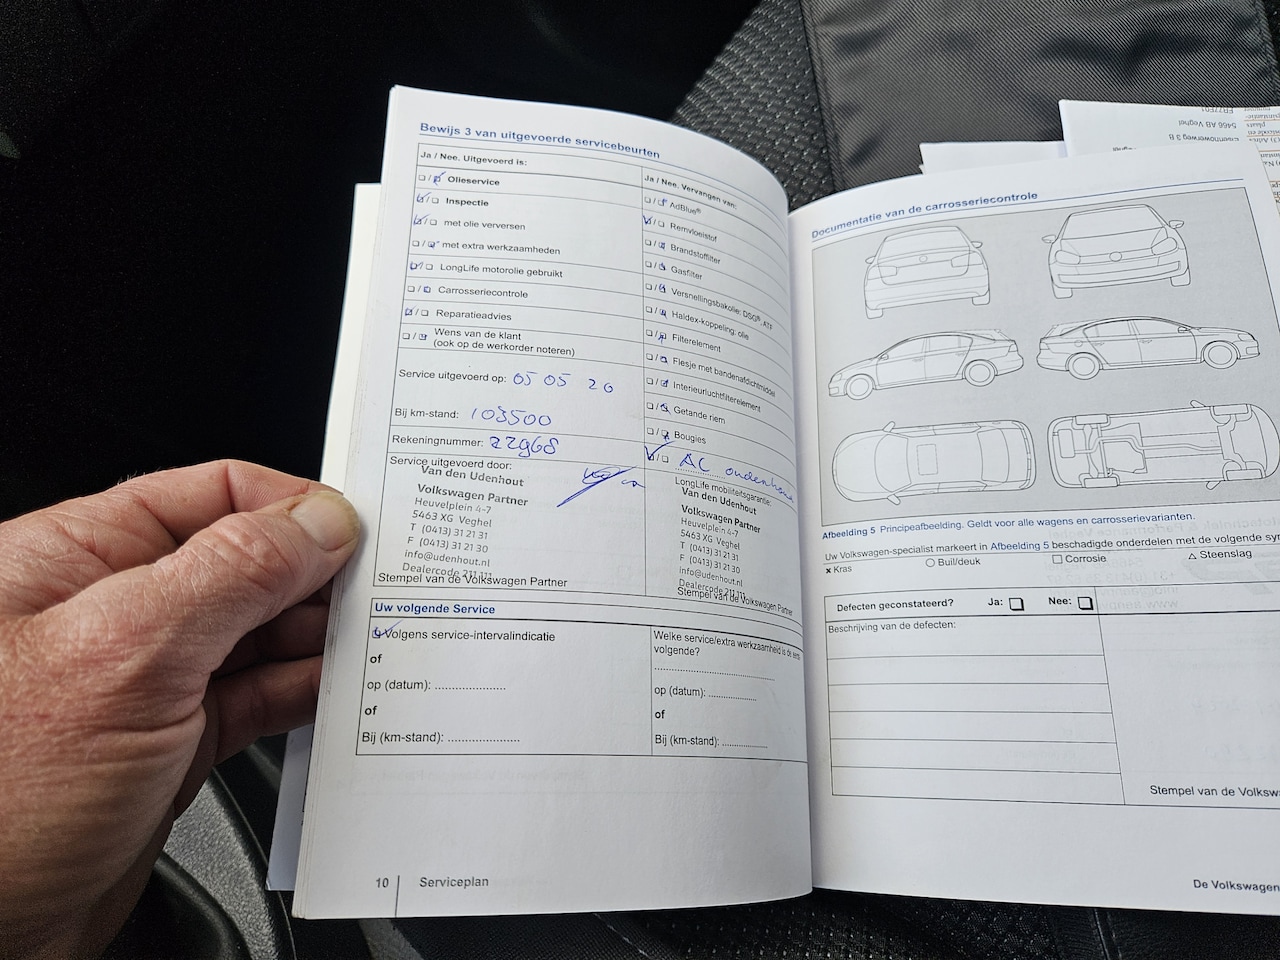 Bewijs 3 van uitgevoerde servicebeurten
Ja / Nee. Uitgevoerd is:
Olieservice
Inspectie
met olie verversen
met extra werkzaamheden
LongLife motorolie gebruikt
Carrosseriecontrole
Reparatieadvies
Wens van de klant
(ook op de werkorder noteren)
Service uitgevoerd op: 05 05 20
Bij km-stand: 103500
Rekeningnummer: 22968
Service uitgevoerd door:
Van den Udenhout
Volkswagen Partner
Heuvelplein 4-7
5463 XG Veghel
T (0413) 31 21 31
F (0413) 31 21 30
info@udenhout.nl
Dealercode 211 111
Stempel van de Volkswagen Partner
Ja / Nee. Vervangen van:
AdBlue®
Remvloeistof
Brandstoffilter
Gasfilter
Versnellingsbakolie: DSG®, ATF
Haldex-koppeling: olie
Filterelement
Flesje met bandenafdichtmiddel
Interieurluchtfilterelement
Getande riem
Bougies
AC onderhoud
LongLife mobiliteitsgarantie:
Van den Udenhout
Volkswagen Partner
Heuvelplein 4-7
5463 XG Veghel
T (0413) 31 21 31
F (0413) 31 21 30
info@udenhout.nl
Dealercode 211 111
Stempel van de Volkswagen Partner
Uw volgende Service
Volgens service-intervalindicatie
of
op (datum): ......................
of
Bij (km-stand): ......................
Welke service/extra werkzaamheid is de
volgende?
op (datum): ...............
of
Bij (km-stand): ..............
10 Serviceplan
Documentatie van de carrosseriecontrole
Afbeelding 5 Principeafbeelding. Geldt voor alle wagens en carrosserievarianten.
Uw Volkswagen-specialist markeert in Afbeelding 5 beschadigde onderdelen met de volgende
× Kras
○ Buil/deuk
□ Corrosie
△ Steenslag
Defecten geconstateerd? Ja: Nee:
Beschrijving van de defecten:
Stempel van de
De Volkswagen
5466 AB Veghel